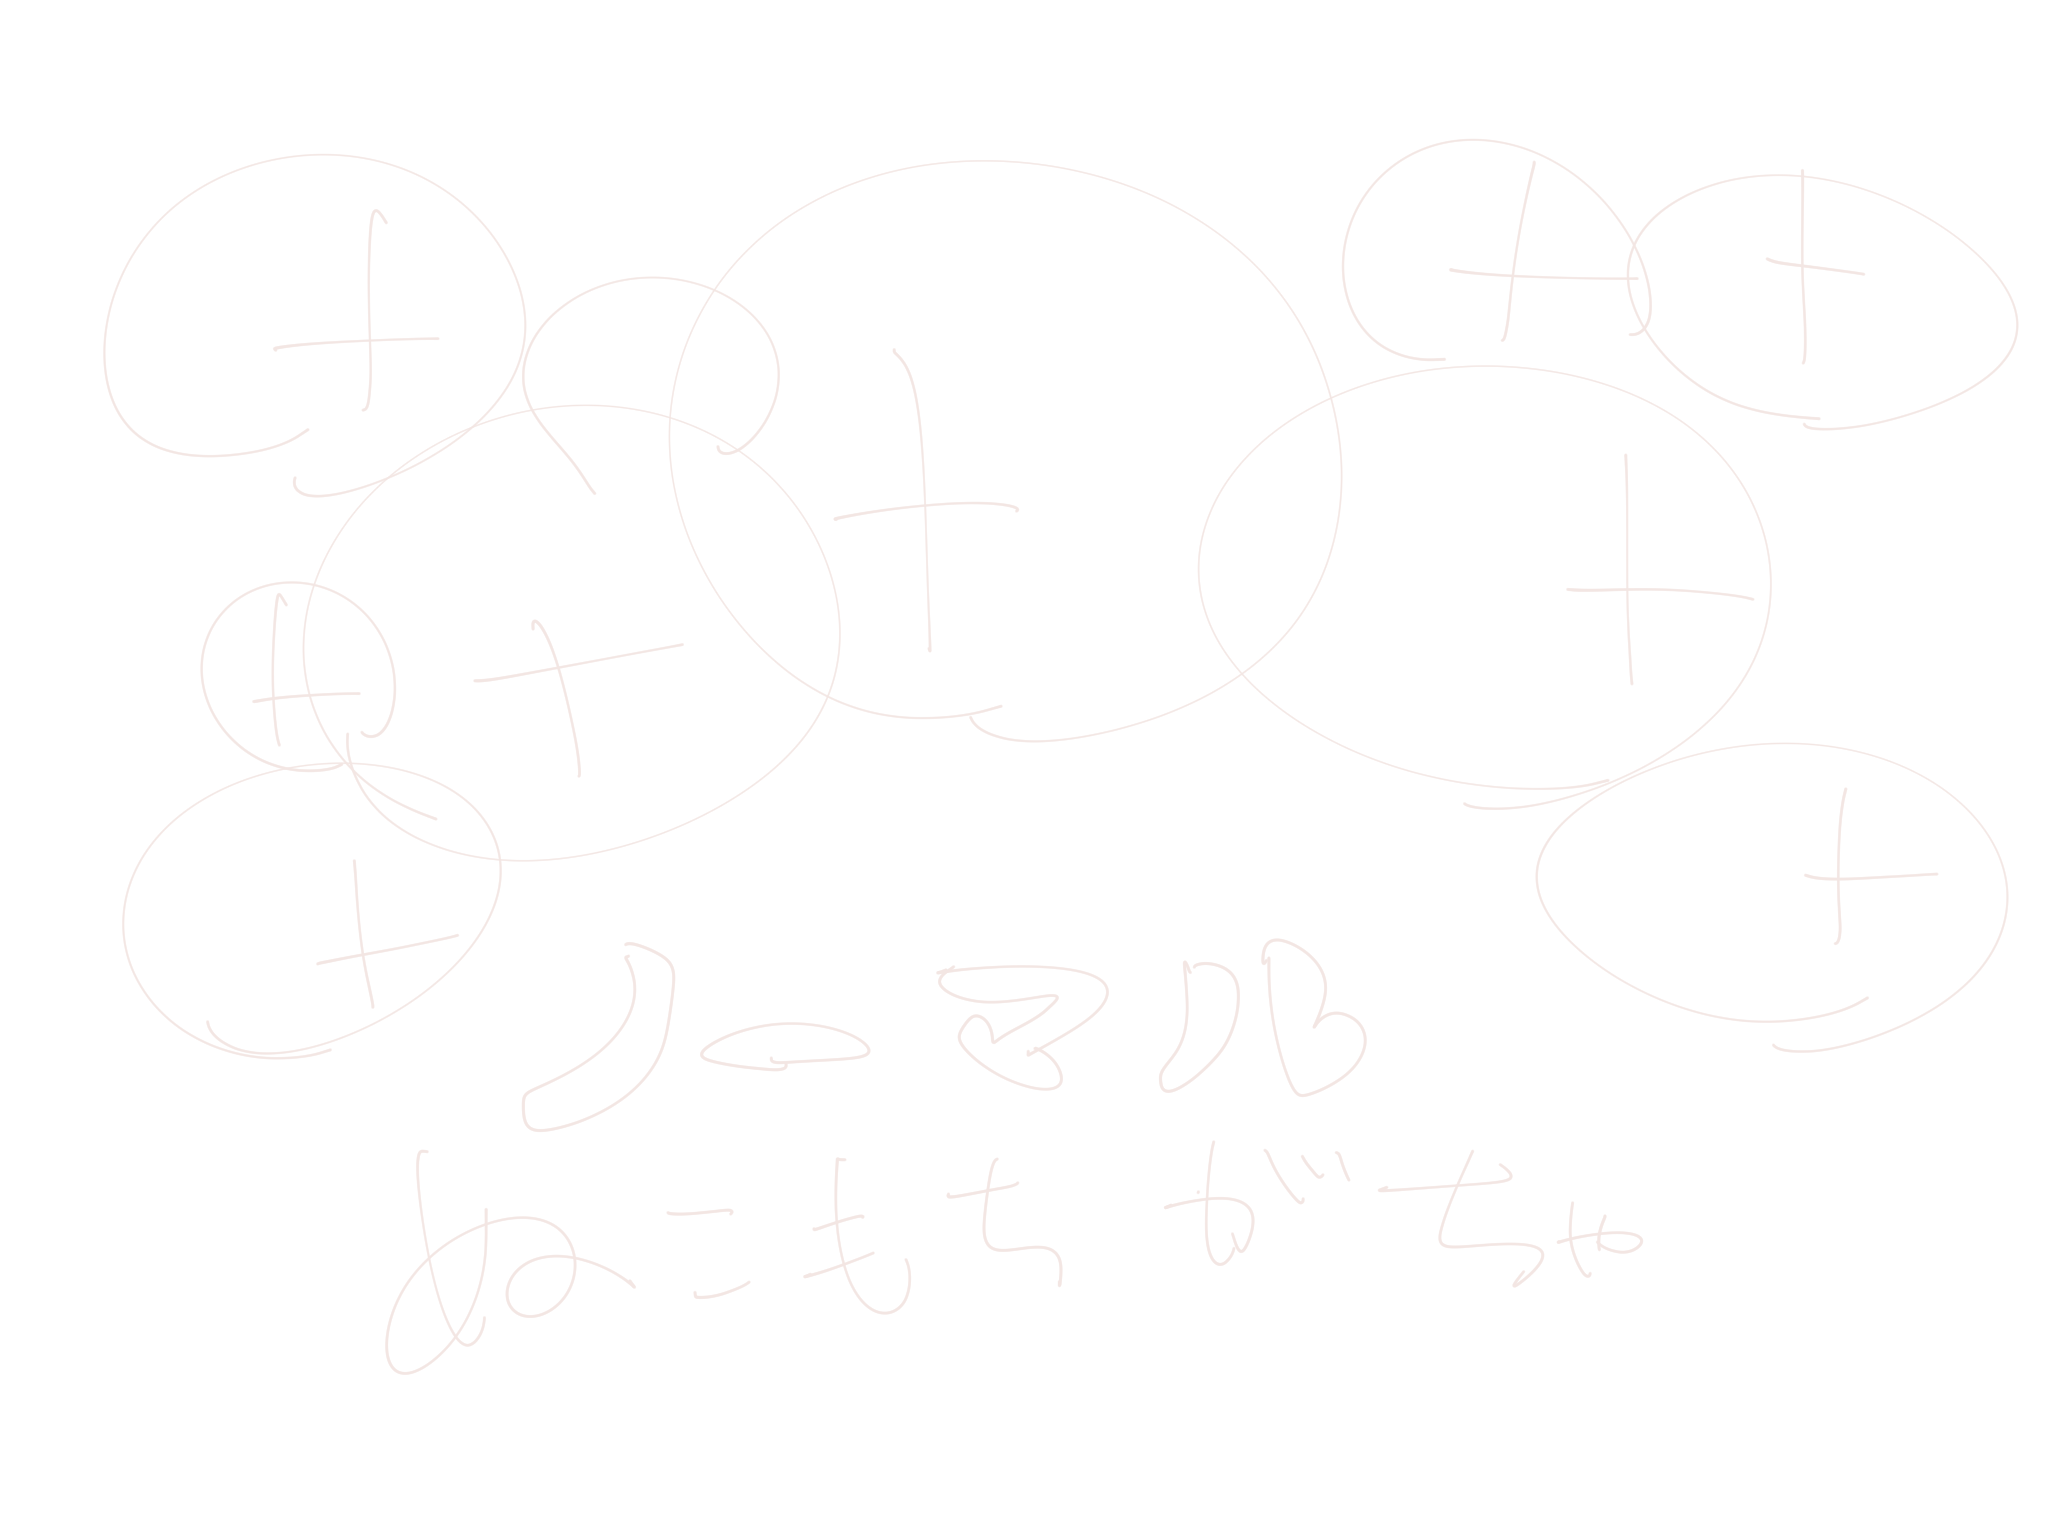 ノーマル
ねこもちがちゃ